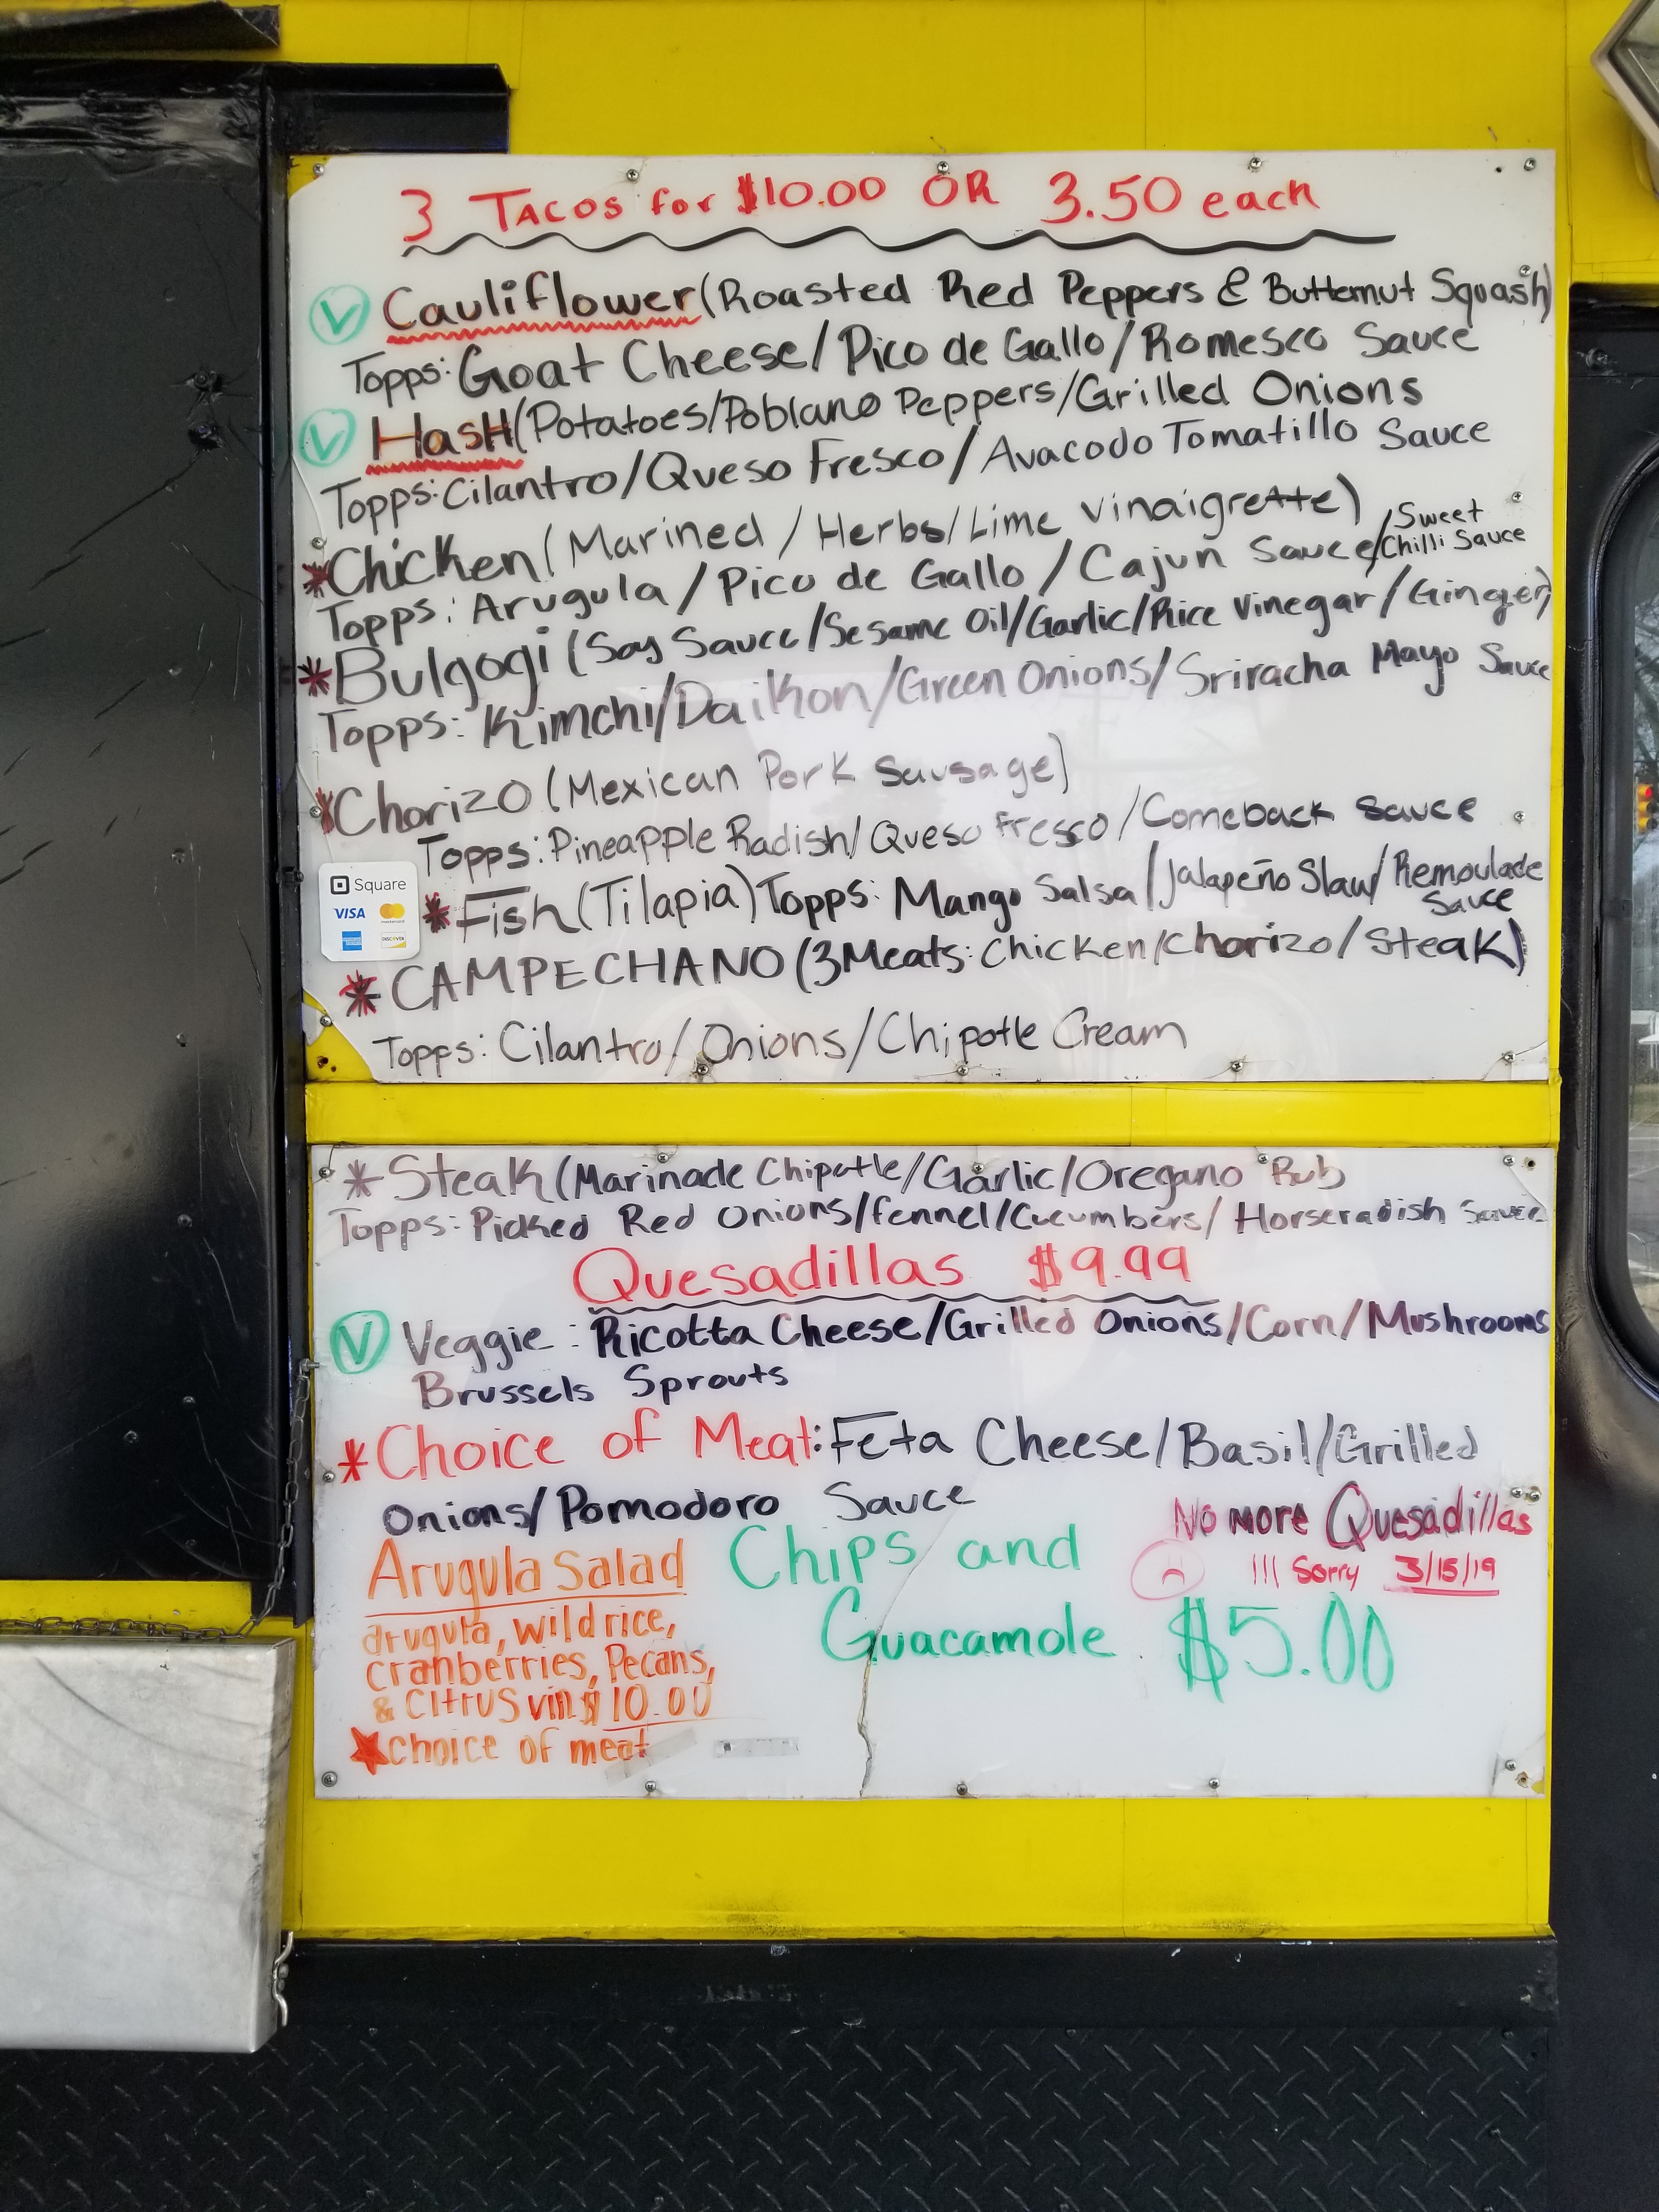 3 TACOS for $10.00 OR 3.50 each
V Cauliflower (Roasted Red Peppers & Butternut Squash)
Topps: Goat Cheese/Pico de Gallo/Romesco Sauce
V HasH (Potatoes/Poblano Peppers/Grilled Onions
Topps: Cilantro/Queso Fresco/Avacodo Tomatillo Sauce
*Chicken (Marined / Herbs/Lime Vinaigrette)
Topps: Arugula / Pico de Gallo / Cajun Sauce/Sweet Chilli Sauce
*Bulgogi (Soy Sauce/Sesame Oil/Garlic/Rice Vinegar/Ginger)
Topps: Kimchi/Daikon/Green Onions/Sriracha Mayo Sauce
*Chorizo (Mexican Pork Sausage)
Topps: Pineapple Radish/Queso Fresco/Comeback Sauce
Square
VISA mastercard
AMERICAN EXPRESS DISCOVER
*Fish (Tilapia) Topps: Mango Salsa/Jalapeño Slaw/Remoulade Sauce
*CAMPECHANO (3Meats: Chicken/Chorizo/Steak)
Topps: Cilantro/Onions/Chipotle Cream
*Steak (Marinade Chipotle/Garlic/Oregano Rub
Topps: Picked Red Onions/Fennel/Cucumbers/Horseradish Sauce
Quesadillas $9.99
V Veggie: Ricotta Cheese/Grilled Onions/Corn/Mushrooms
Brussels Sprouts
*Choice of Meat: Feta Cheese/Basil/Grilled
Onions/Pomodoro Sauce
No more Quesadillas
!!! Sorry 3/15/19
Arugula Salad
arugula, wild rice,
cranberries, Pecans,
& citrus vin $10.00
★choice of meat
Chips and
Guacamole $5.00